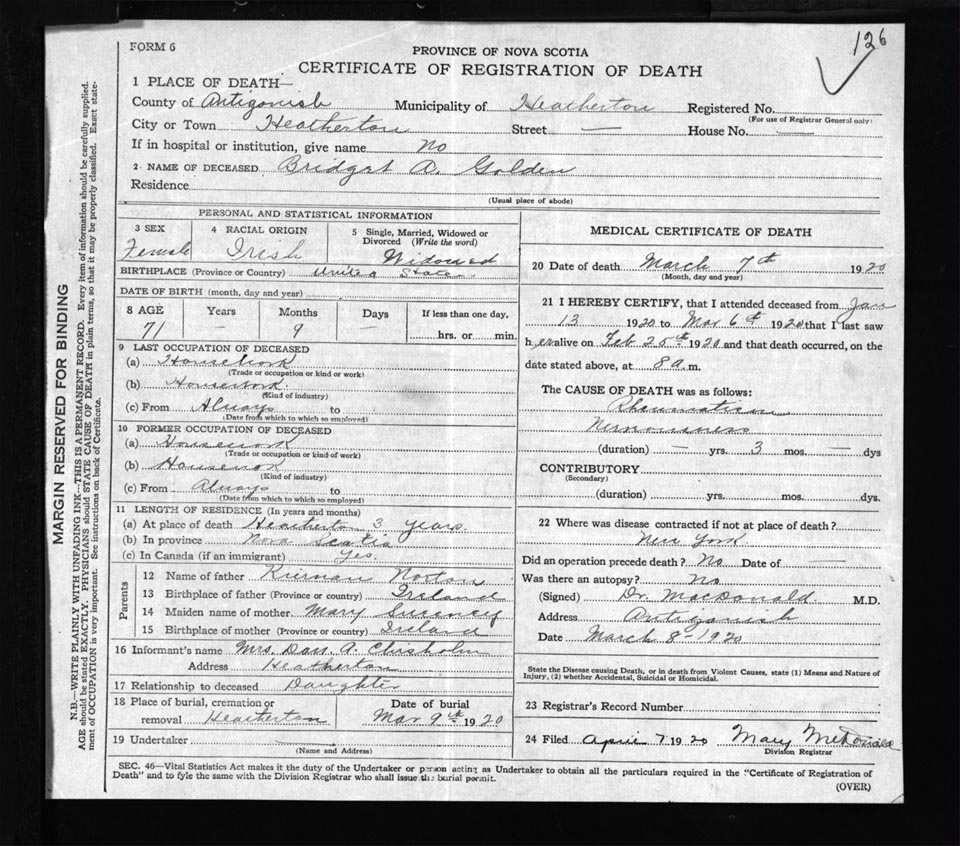 126
FORM 6
PROVINCE OF NOVA SCOTIA
CERTIFICATE OF REGISTRATION OF DEATH
1 PLACE OF DEATH—
County of Antigonish Municipality of Heatherton Registered No.
(For use of Registrar General only)
City or Town Heatherton Street — House No. —
If in hospital or institution, give name No
2 NAME OF DECEASED Bridget A. Golden
Residence
(Usual place of abode)
PERSONAL AND STATISTICAL INFORMATION
3 SEX
Female
4 RACIAL ORIGIN
Irish
5 Single, Married, Widowed or
Divorced (Write the word)
Widowed
BIRTHPLACE (Province or Country) United State
DATE OF BIRTH (month, day and year)
8 AGE Years Months Days If less than one day,
71 — 9 — hrs. or min.
9 LAST OCCUPATION OF DECEASED
(a) Housework
(Trade or occupation or kind or work)
(b) Housework
(Kind of industry)
(c) From Always to
(Date from which to which so employed)
10 FORMER OCCUPATION OF DECEASED
(a) Housework
(Trade or occupation or kind of work)
(b) Housework
(Kind of industry)
(c) From Always to
(Date from which to which so employed)
11 LENGTH OF RESIDENCE (In years and months)
(a) At place of death Heatherton 3 years.
(b) In province Nova Scotia
(c) In Canada (if an immigrant) Yes.
Parents
12 Name of father Kiernan Norton
13 Birthplace of father (Province or country) Ireland
14 Maiden name of mother Mary Sweeney
15 Birthplace of mother (Province or country) Ireland
16 Informant's name Mrs. Dan. A. Chisholm
Address Heatherton
17 Relationship to deceased Daughter
18 Place of burial, cremation or
removal Heatherton
Date of burial
Mar 9th 1920
19 Undertaker
(Name and Address)
MEDICAL CERTIFICATE OF DEATH
20 Date of death March 7th 1920
(Month, day and year)
21 I HEREBY CERTIFY, that I attended deceased from Jan
13 1920 to Mar 6th 1920 that I last saw
h er alive on Feb 25th 1920 and that death occurred, on the
date stated above, at 8 a.m.
The CAUSE OF DEATH was as follows:
Rheumatism
Nervousness
(duration) — yrs. 3 mos. — dys
CONTRIBUTORY
(Secondary)
(duration) yrs. mos. dys.
22 Where was disease contracted if not at place of death?
New York
Did an operation precede death? No Date of —
Was there an autopsy? No
(Signed) Dr. MacDonald. M.D.
Address Antigonish
Date March 8th 1920
State the Disease causing Death, or in death from Violent Causes, state (1) Means and Nature of
Injury, (2) whether Accidental, Suicidal or Homicidal.
23 Registrar's Record Number
24 Filed April 7 1920 Mary McDonald
Division Registrar
SEC. 46—Vital Statistics Act makes it the duty of the Undertaker or person acting as Undertaker to obtain all the particulars required in the "Certificate of Registration of
Death" and to fyle the same with the Division Registrar who shall issue the burial permit.
(OVER)
MARGIN RESERVED FOR BINDING
N.B.—WRITE PLAINLY WITH UNFADING INK—THIS IS A PERMANENT RECORD. Every item of information should be carefully supplied.
AGE should be stated EXACTLY. PHYSICIANS should STATE CAUSE OF DEATH in plain terms, so that it may be properly classified. Exact state-
ment of OCCUPATION is very important. See instructions on back of Certificate.